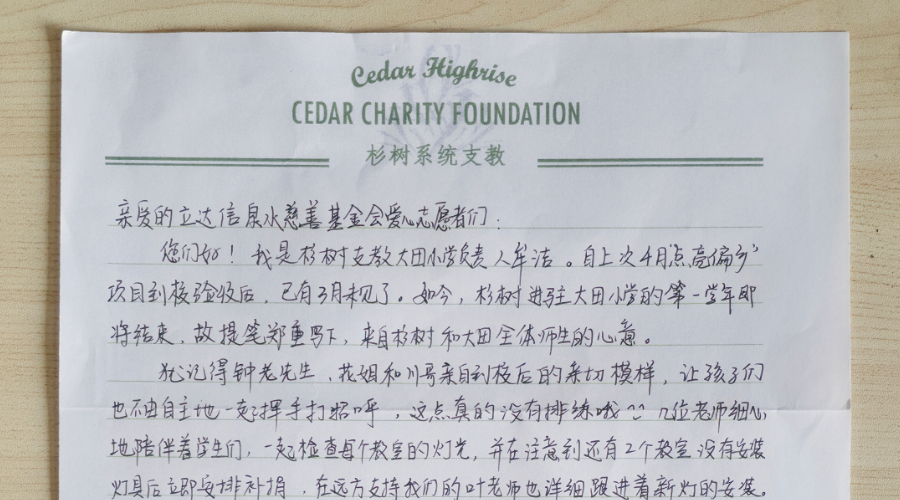 Cedar Highrise
CEDAR CHARITY FOUNDATION
杉树系统支教
亲爱的立达信泉水慈善基金会爱心志愿者们:
您们好!我是杉树支教大田小学负责人牟洁。自上次4月"点亮偏乡"
项目到校验收后,已有3月未见了。如今,杉树进驻大田小学的第一学年即
将结束,故提笔郑重写下,来自杉树和大田全体师生的心意。
犹记得钟老先生、花姐和川哥亲自到校后的亲切模样,让孩子们
也不由自主地一起挥手打招呼,这点真的没有排练哦~ 几位老师细心
地陪伴着学生们,一起检查每个教室的灯光,并在注意到还有2个教室没有安装
灯具后立即安排补捐,在远方支持我们的叶老师也详细跟进着新灯的安装。